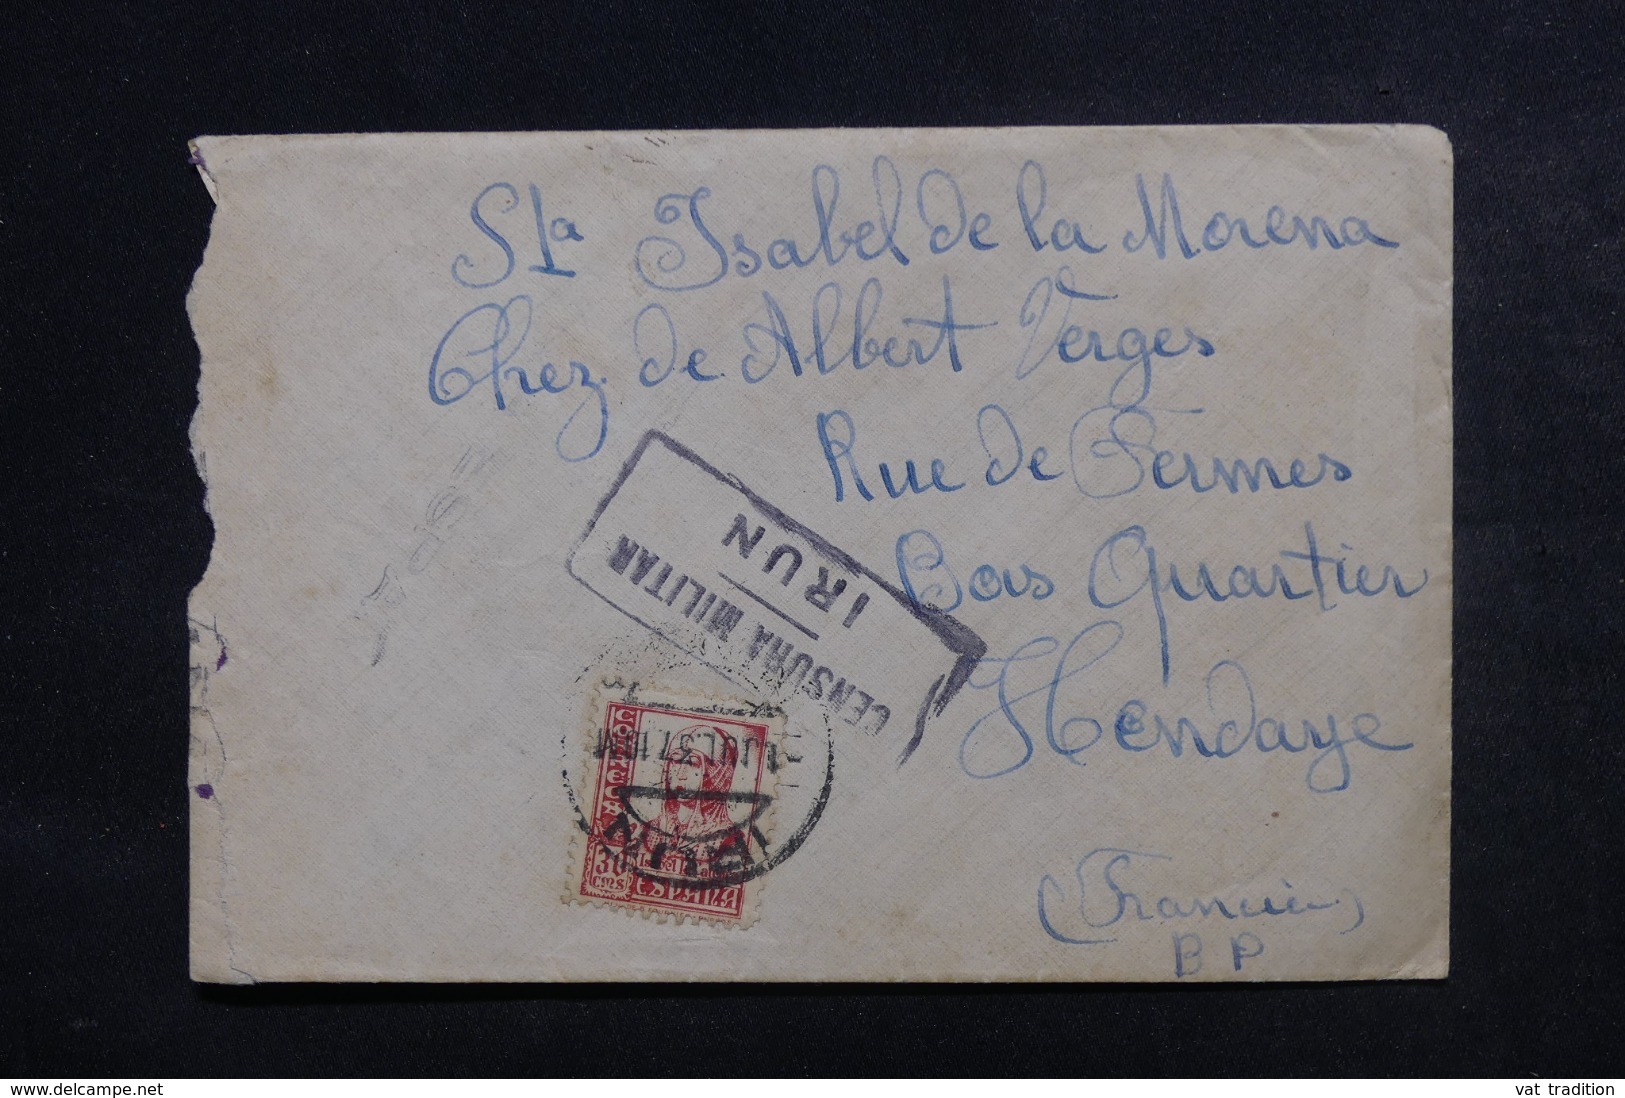 Sta Isabel de la Morena
Chez de Albert Verges
Rue de Fermes
Bas Quartier
Hendaye
(Francia)
B P
CENSURA MILITAR
IRUN
JUL.37.10M
IRUN
CORREOS
30
CMS
ESPAÑA
www.delcampe.net
vat_tradition